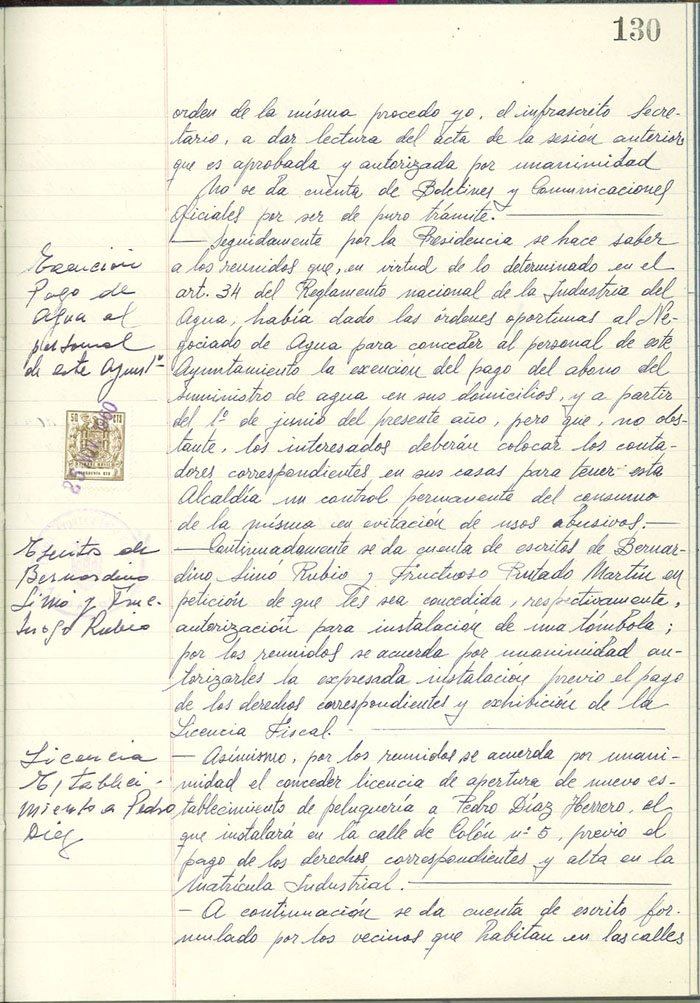 130
orden de la misma procedo yo, el infrascrito Secre-
tario, a dar lectura del acta de la sesión anterior,
que es aprobada y autorizada por unanimidad
No se da cuenta de Boletines y Comunicaciones
Oficiales por ser de puro trámite.
Exención
Pago de
Agua al
personal
de este Ayuntº
— Seguidamente por la Presidencia se hace saber
a los reunidos que, en virtud de lo determinado en el
art. 34 del Reglamento nacional de la Industria del
Agua, había dado las órdenes oportunas al Ne-
gociado de Agua para conceder al personal de este
Ayuntamiento la exención del pago del abono del
suministro de agua en sus domicilios, y a partir
del 1º de junio del presente año, pero que, no obs-
tante, los interesados deberán colocar los conta-
dores correspondientes en sus casas para tener esta
Alcaldía un control permanente del consumo
de la misma en evitación de usos abusivos.—
50 CTS
Escritos de
Bernardino
Simó y Fruc-
tuoso Rubio
— Continuadamente se da cuenta de escritos de Bernar-
dino Simó Rubio y Fructuoso Hurtado Martín en
petición de que les sea concedida, respectivamente,
autorización para instalacion de una tómbola;
por los reunidos se acuerda por unanimidad au-
torizarles la expresada instalación previo el pago
de los derechos correspondientes y exhibición de la
Licencia Fiscal.
Licencia
Estableci-
miento a Pedro
Diez
— Asimismo, por los reunidos se acuerda por unani-
midad el conceder licencia de apertura de nuevo es-
tablecimiento de peluqueria a Pedro Díaz Herrero, el
que instalará en la calle de Colón nº 5, previo el
pago de los derechos correspondientes y alta en la
Matrícula Industrial.
— A continuación se da cuenta de escrito for-
mulado por los vecinos que habitan en las calles